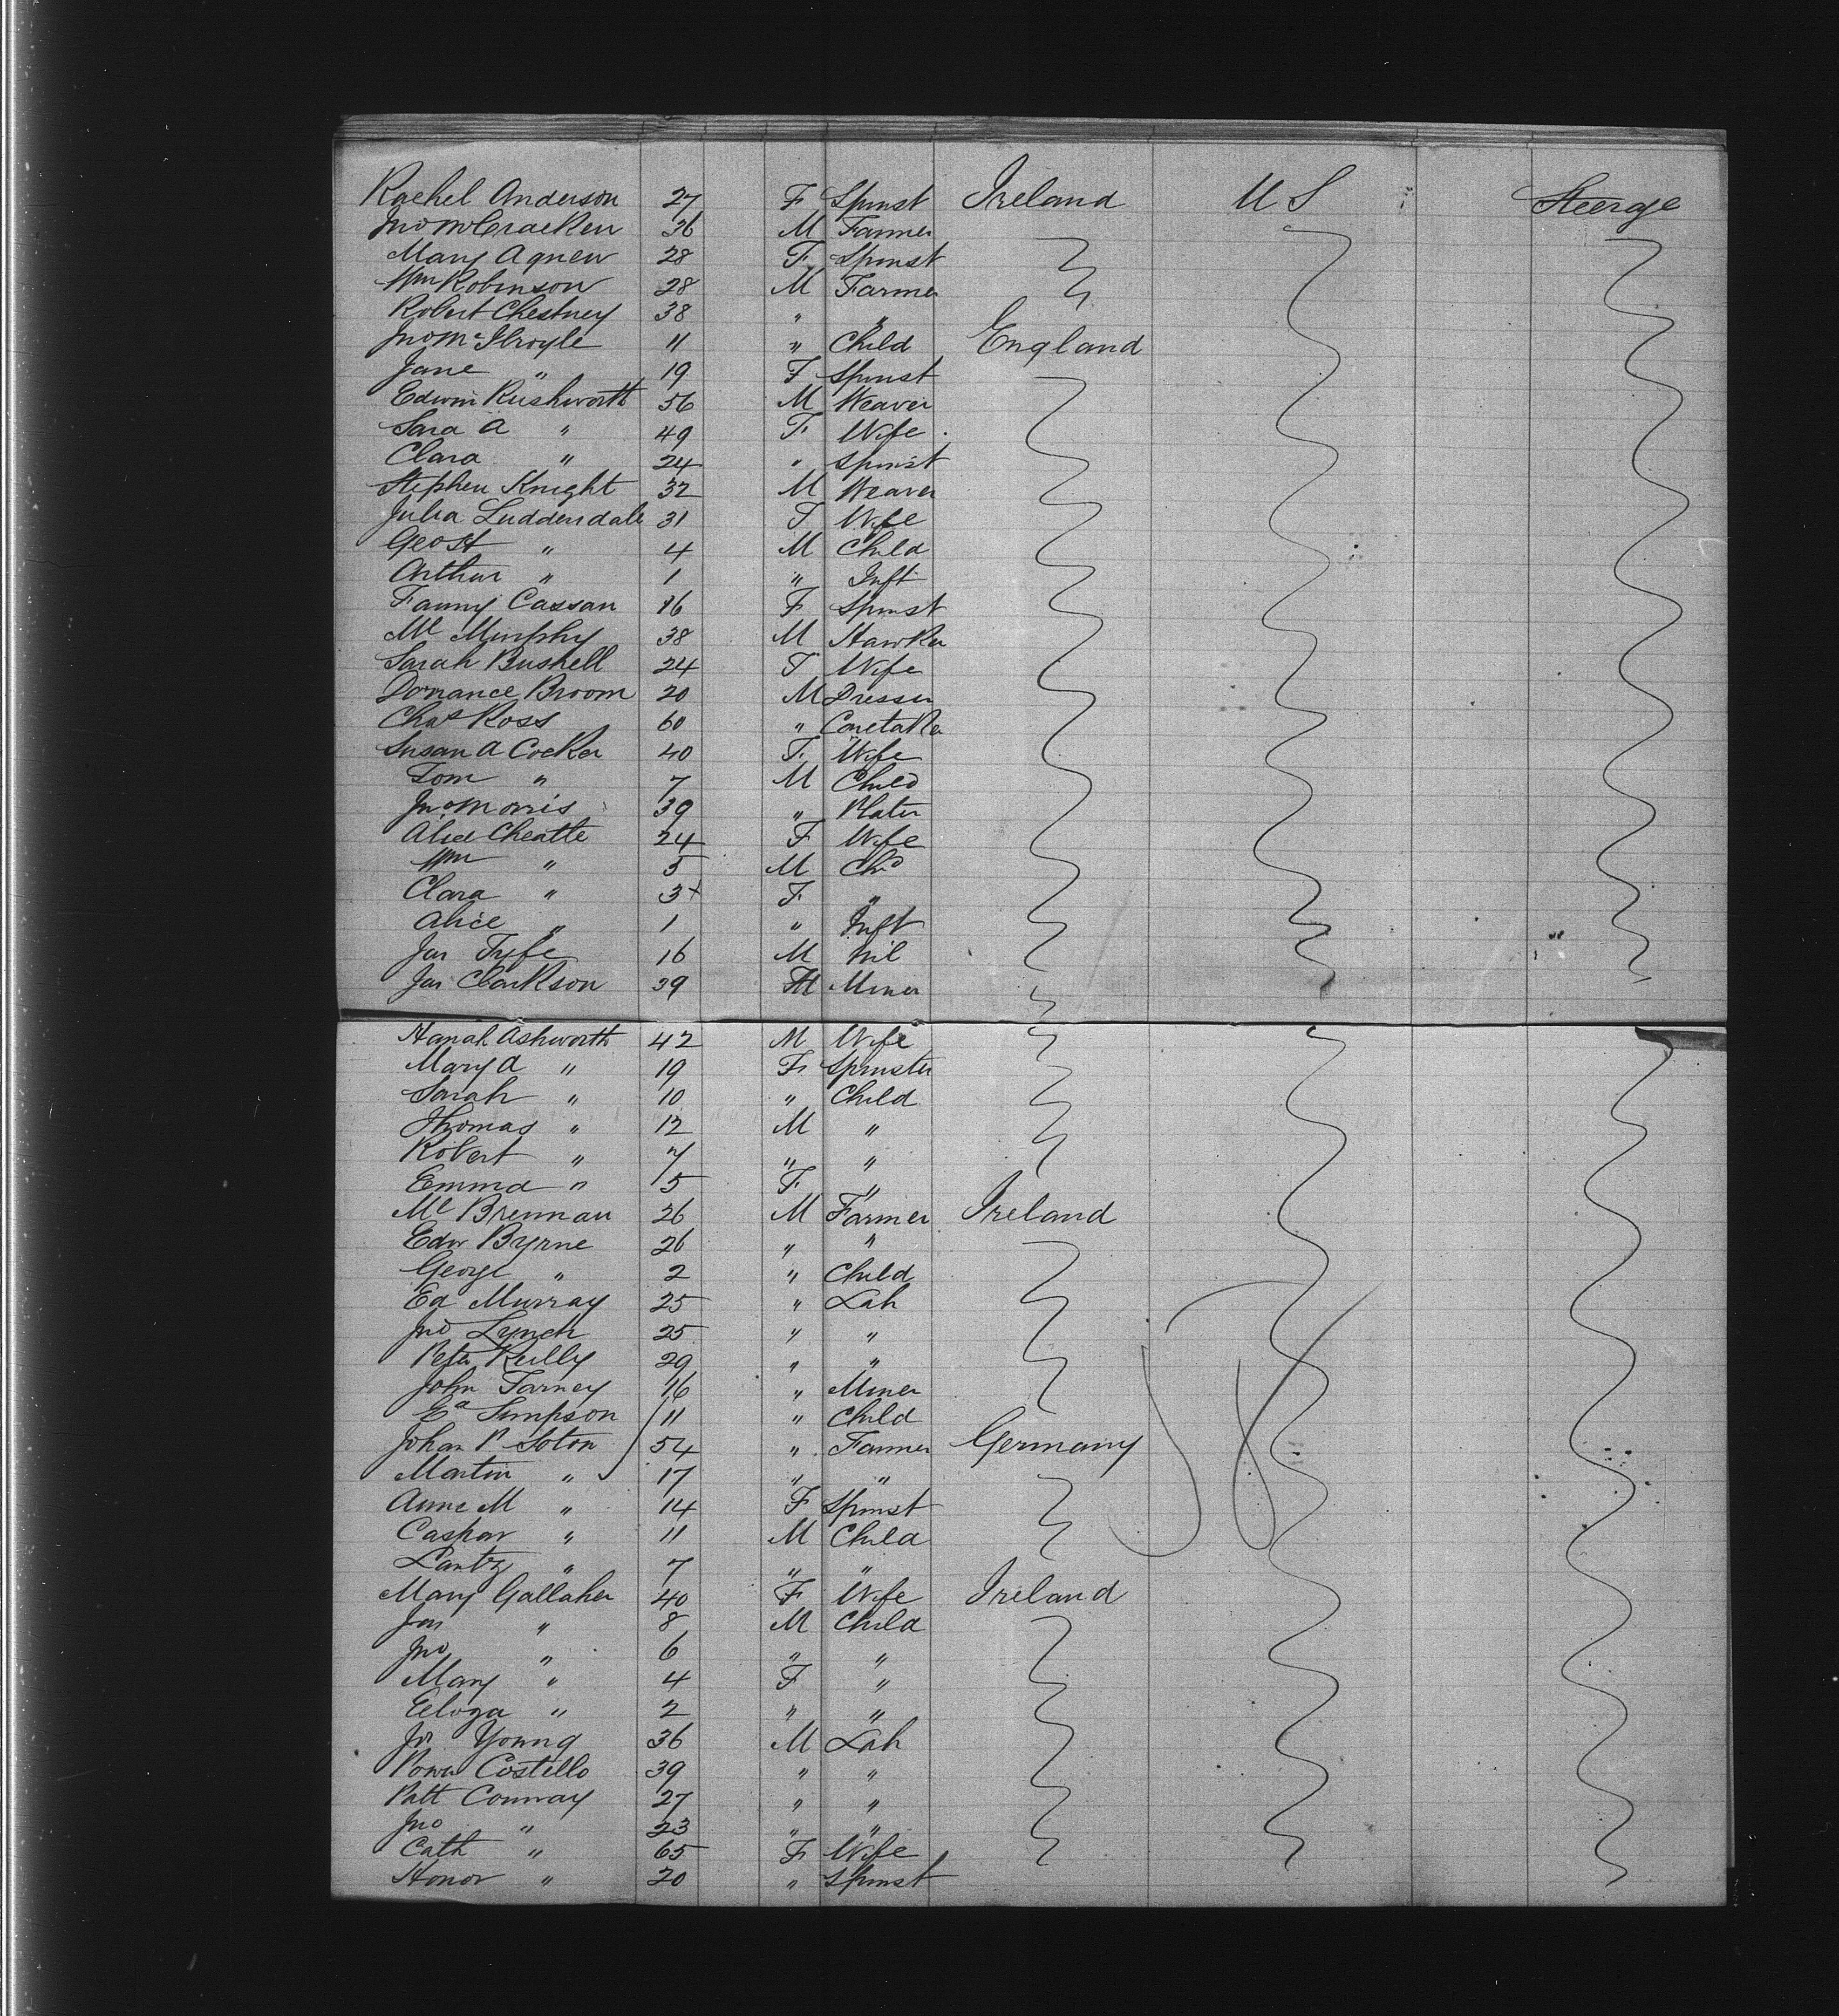 Rachel Anderson 27 F Spinst Ireland U S Steerage
Jno McCracken 36 M Farmer
Mary Agnew 28 F Spinst
Wm Robinson 28 M Farmer
Robert Chestney 38 " "
Jno Mc Ilroyle 11 " Child England
Jane " 19 F Spinst
Edwin Rushworth 56 M Weaver
Sara A " 49 F Wife
Clara " 24 " Spinst
Stephen Knight 32 M Weaver
Julia Luddendale 31 F Wife
Geo St " 4 M Child
Arthur " 1 " Inft
Fanny Cassan 16 F Spinst
Ml Murphy 38 M Hawker
Sarah Bushell 24 F Wife
Dorrance Broom 20 M Dresser
Chas Ross 60 " Caretaker
Susan A Cocker 40 F Wife
Tom " 7 M Child
Jno Morris 39 " Plater
Alice Cheatle 24 F Wife
Wm " 5 M Chd
Clara " 3 F "
Alice " 1 " Inft
Jas Fyfe 16 M Nil
Jas Clarkson 39 M Miner
Hanah Ashworth 42 M Wife
Mary A " 19 F Spinster
Sarah " 10 " Child
Thomas " 12 M "
Robert " 7 " "
Emma " 5 F "
Ml Brennan 26 M Farmer Ireland
Edw Byrne 26 " "
George " 2 " Child
Ed Murray 25 " Lab
Jno Lynch 25 " "
Peter Reilly 29 " "
John Farney 16 " Miner
Ed Simpson 11 " Child
Johan P Soton 54 " Farmer Germany
Martin " 17 " "
Anne M " 14 F Spinst
Caspar " 11 M Child
Lantz " 7 " "
Mary Gallaher 40 F Wife Ireland
Jas " 8 M Child
Jno " 6 " "
Mary " 4 F "
Eloza " 2 " "
Js Young 36 M Lab
Power Costello 39 " "
Patt Conway 27 " "
Jno " 23 " "
Cath " 65 F Wife
Honor " 20 " Spinst